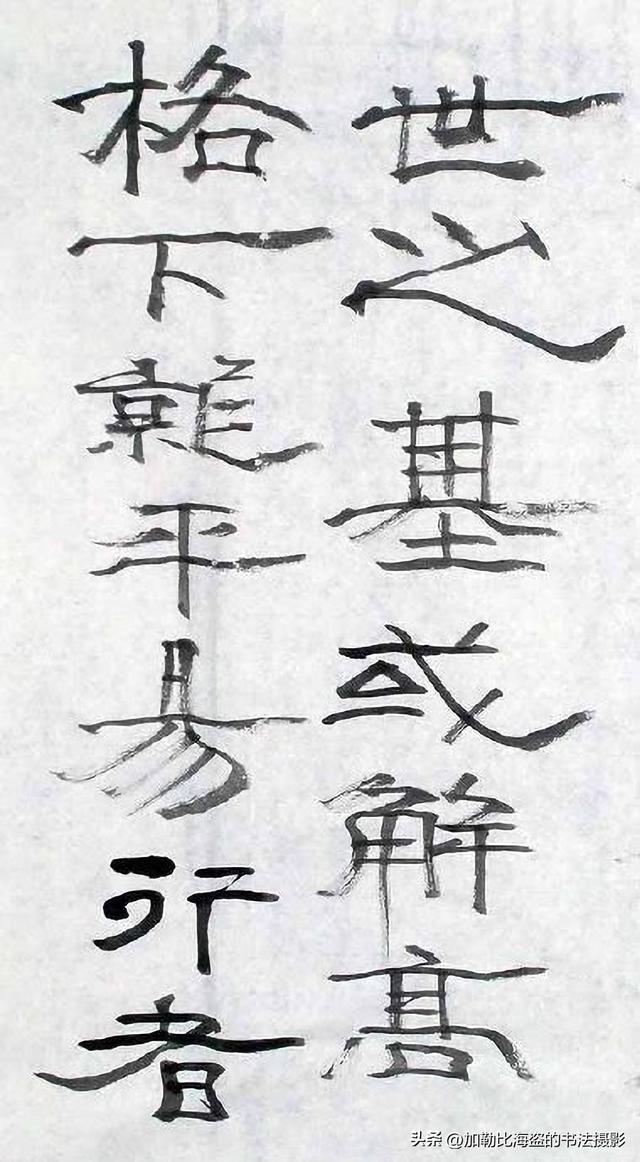 世之基或解髙
格下就平易行者
头条 @加勒比海盗的书法摄影